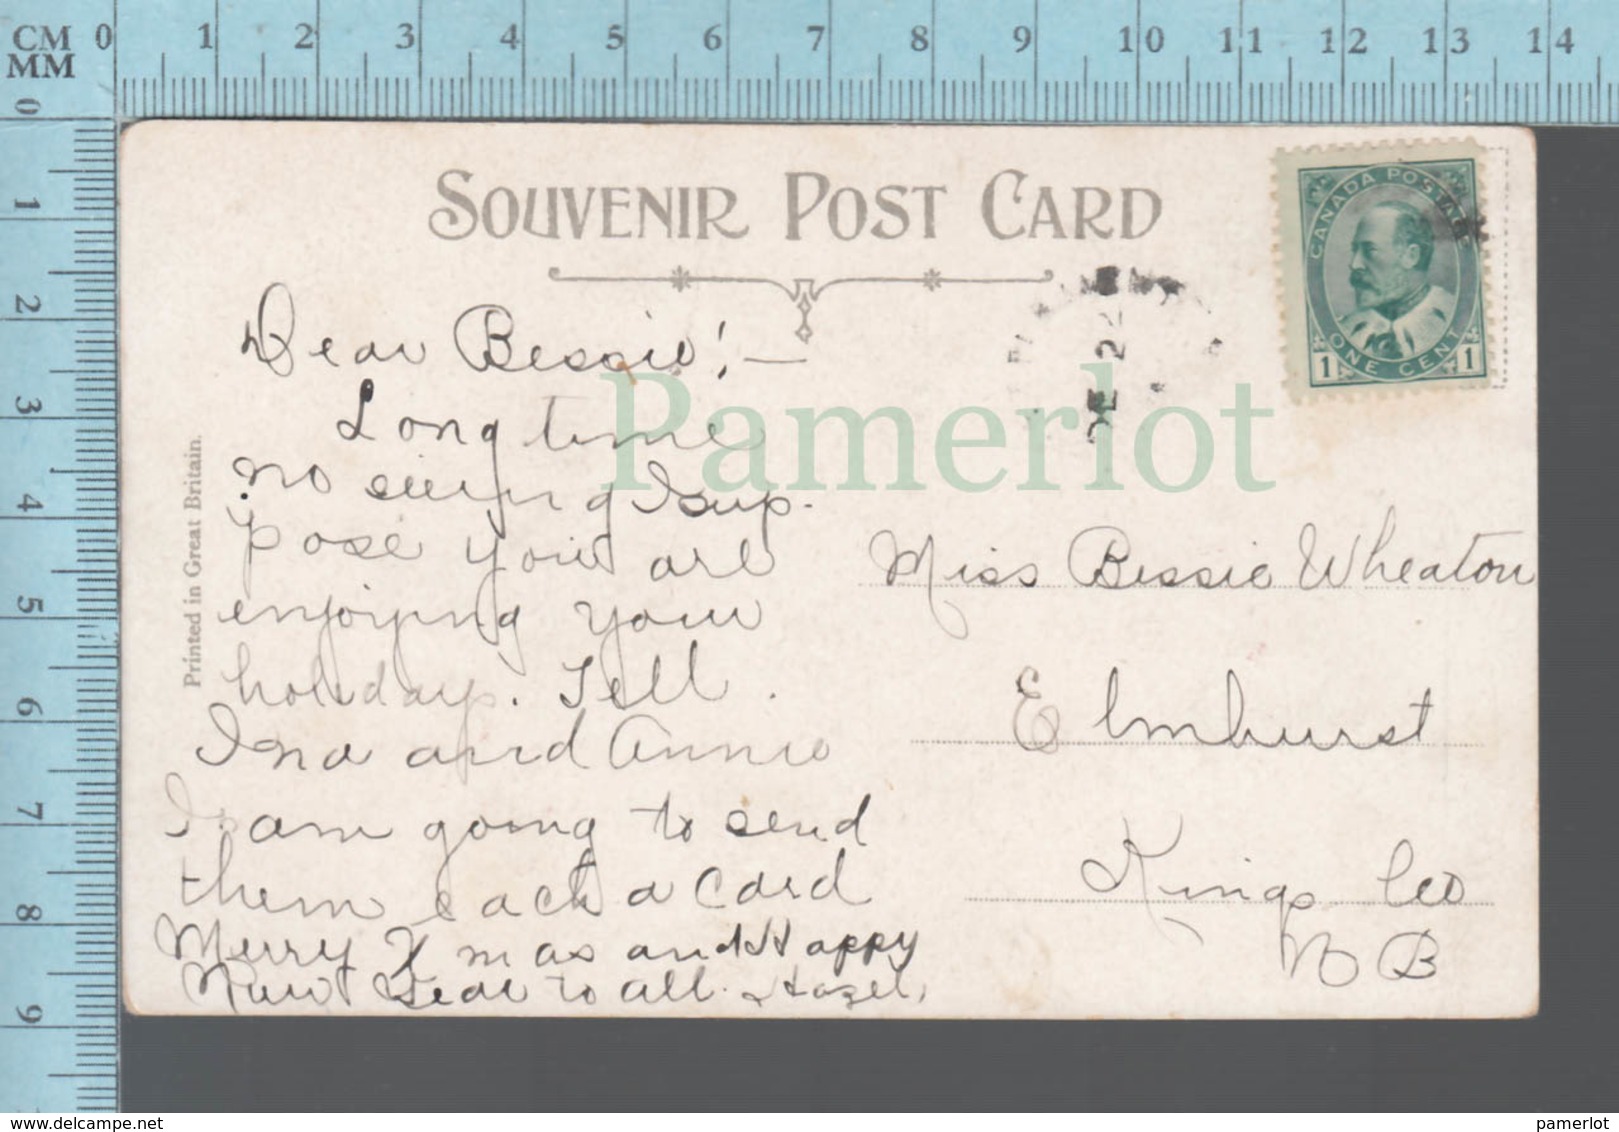 CM 0 1 2 3 4 5 6 7 8 9 10 11 12 13 14
MM
0 1 2 3 4 5 6 7 8 9
SOUVENIR POST CARD
CANADA POSTAGE
1 ONE CENT 1
DE 22
Pamerlot
Printed in Great Britain.
Dear Bessie! —
Long time
no seeing I sup-
pose you are
enjoying your
holidays. Tell
Ina and Annie
I am going to send
them each a card
Merry Xmas and Happy
New Year to all. Hazel.
Miss Bessie Wheaton
Elmhurst
Kings Co
N B
delcampe.net
pamerlot